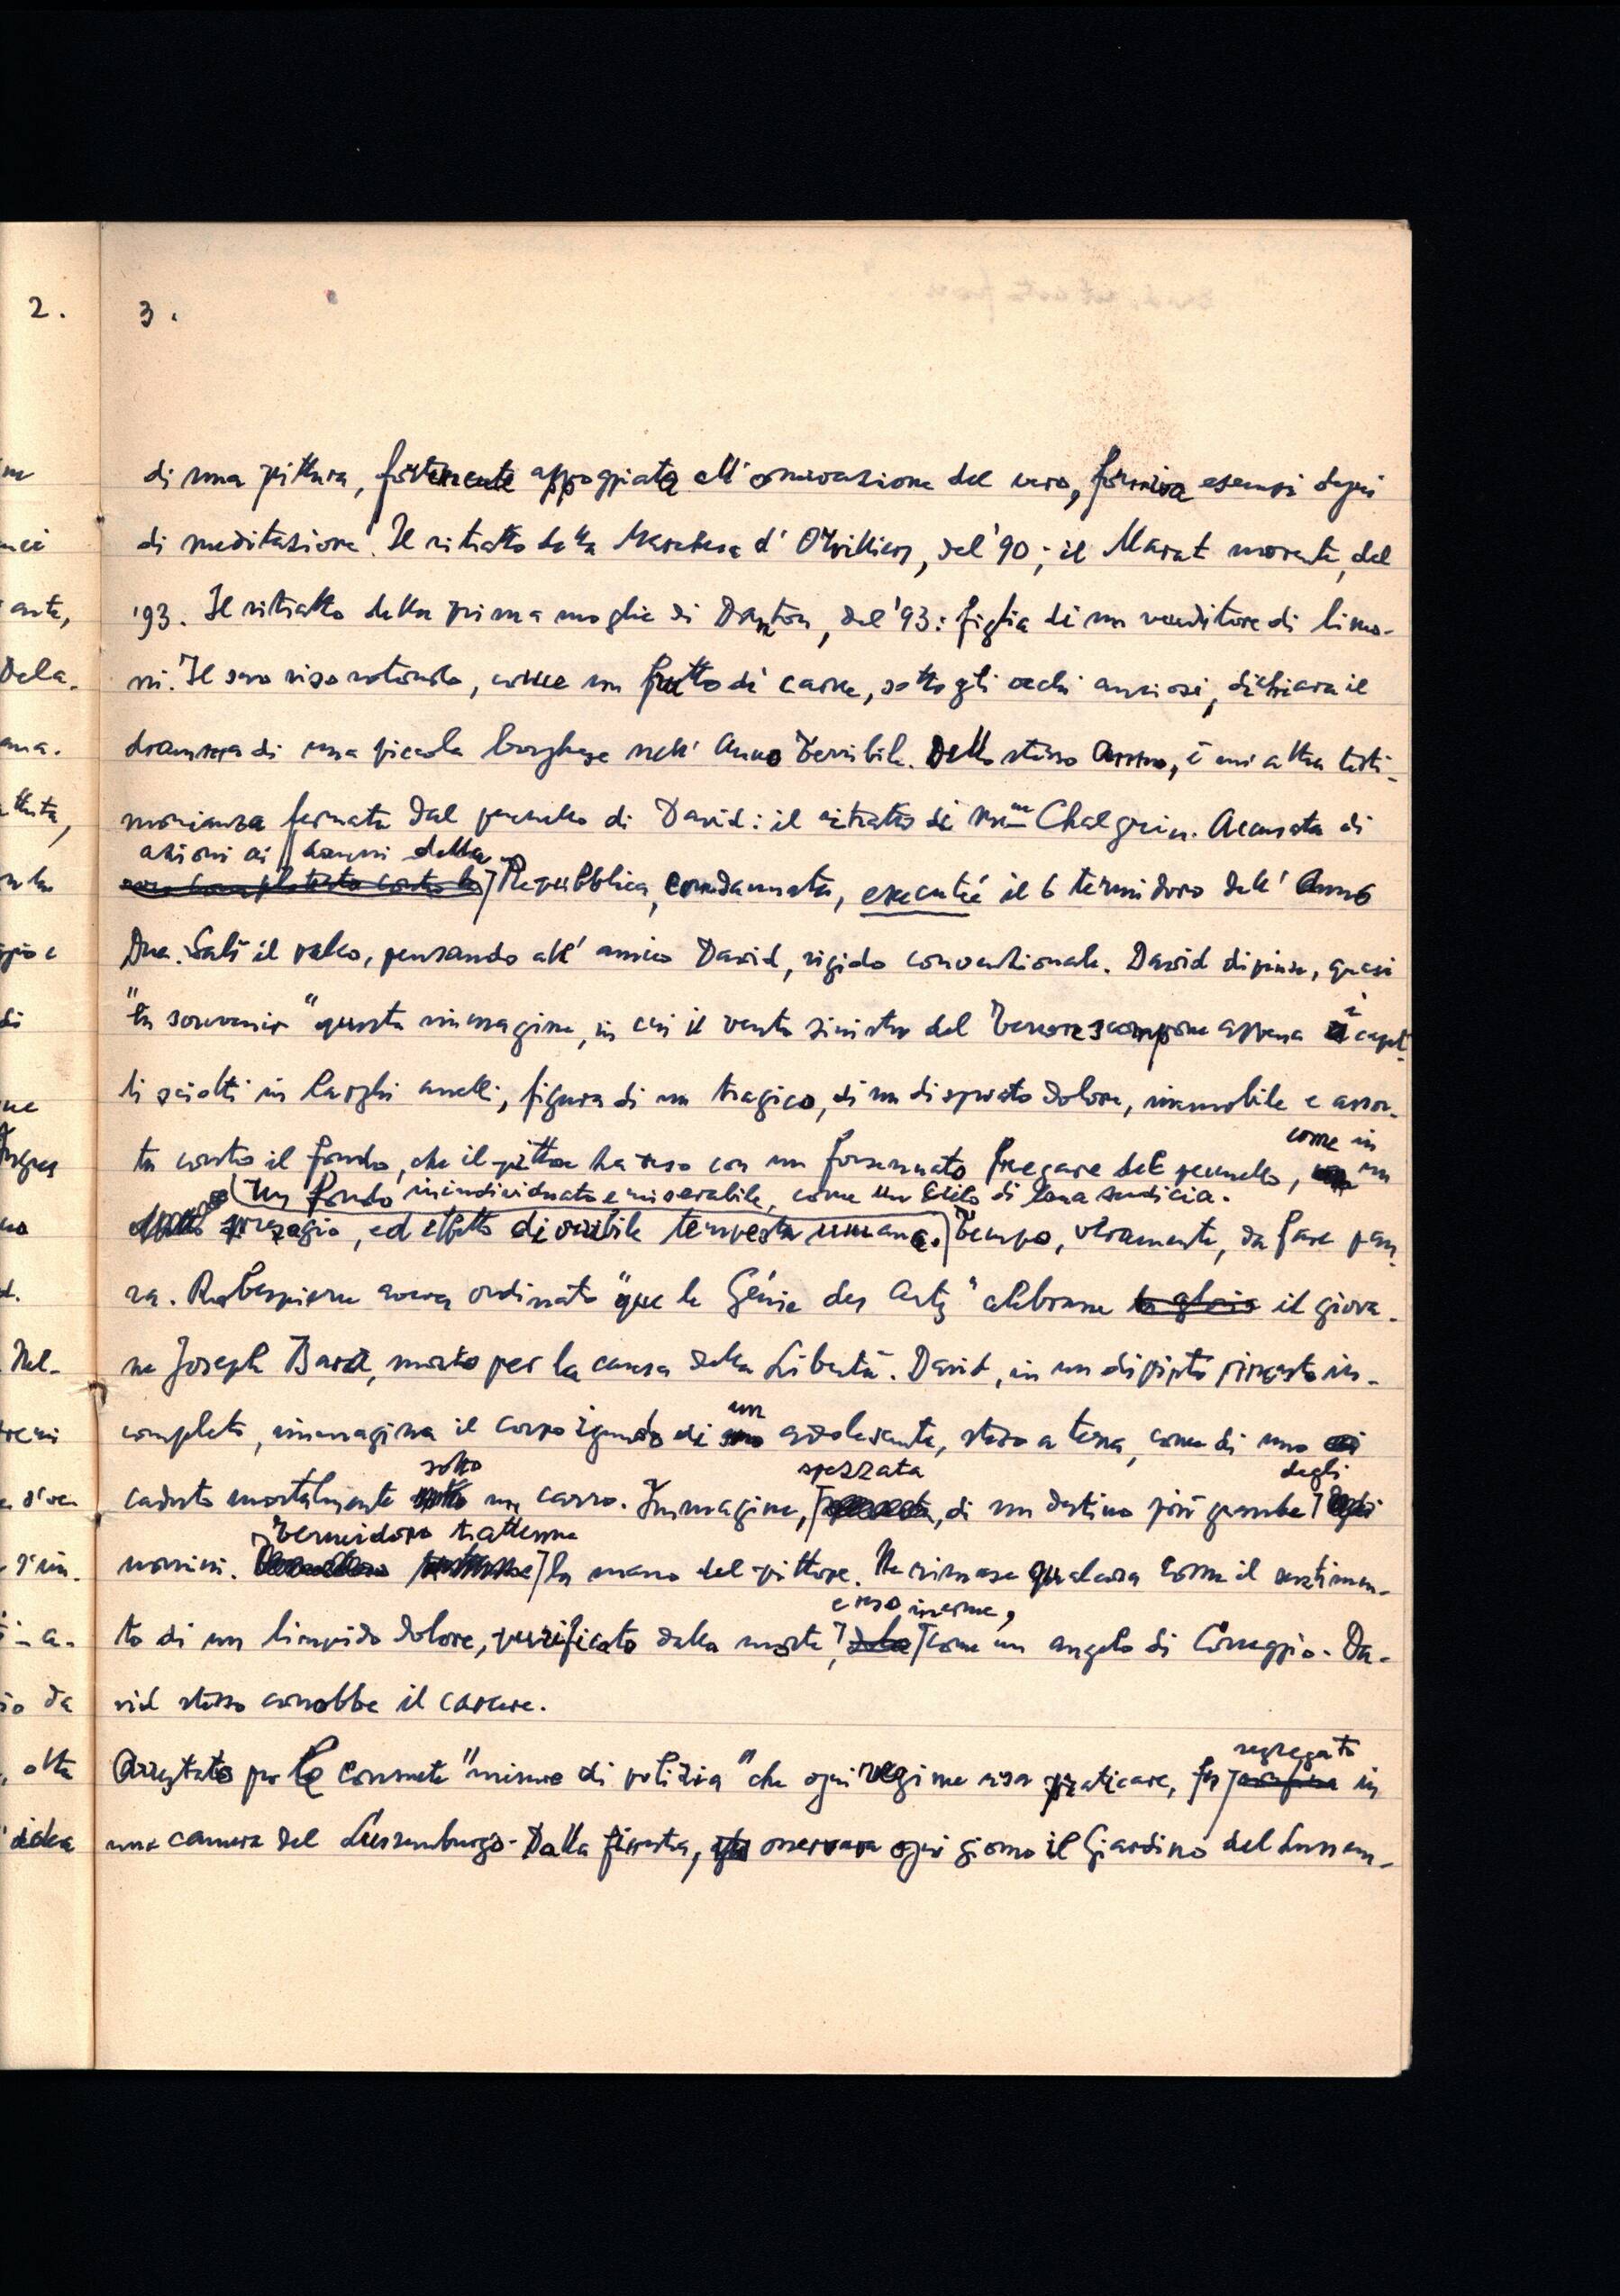 2.
3.
di una pittura, fortemente appoggiata all'osservazione del vero, forniva esempi degni
di meditazione. Il ritratto della Marchesa d'Orvilliers, del '90; il Marat morente, del
'93. Il ritratto della prima moglie di Danton, del '93: figlia di un venditore di limo-
ni. Il suo viso rotondo, come un frutto di carne, sotto gli occhi ansiosi, dichiara il
dramma di una piccola borghese nell'Anno Terribile. Dello stesso Anno, è un'altra testi-
monianza fermata dal pennello di David: il ritratto di Mme Chalgrin. Accusata di
azioni ai danni della
Repubblica, condannata, executée il 6 termidoro dell'Anno
Due. Salì il palco, pensando all'amico David, rigido convenzionale. David dipinse, quasi
"en souvenir" questa immagine, in cui il vento sinistro del Terrore scompone appena i capel-
li sciolti in larghi anelli, figura di un tragico, di un disperato dolore, immobile e assor-
come in
ta contro il fondo, che il pittore ha reso con un forsennato fregare del pennello, un
Un fondo inindividuato e miserabile, come un cielo di lana sudicia.
presagio, ed effetto di orribile tempesta umana. Tempo, veramente, da fare pau-
ra. Robespierre aveva ordinato "que le Génie des Arts" celebrasse la gloria il giova-
ne Joseph Bara, morto per la causa della Libertà. David, in un dipinto rimasto in-
un
completo, immagina il corpo ignudo di adolescente, steso a terra, come di uno
sotto spezzata degli
caduto mortalmente sotto un carro. Immagine, di un destino più grande
Termidoro trattenne
uomini. la mano del pittore. Ne rimase qualcosa come il sentimen-
e reso inerme,
to di un limpido dolore, purificato dalla morte, come un angelo di Correggio. Da-
vid stesso conobbe il carcere.
segregato
Arrestato per le consuete "misure di polizia" che ogni regime usa praticare, fu in
una camera del Lussemburgo. Dalla finestra, osservava ogni giorno il Giardino del Lussem-